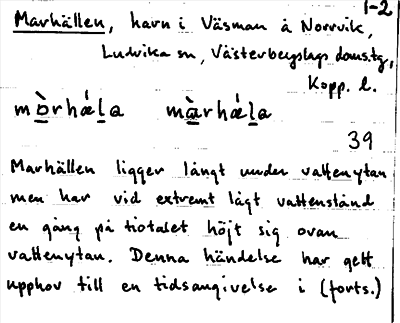 1-2
Marhällen, havn i Väsman å Norrvik,
Ludvika sn, Västerbergslags doms.tg,
Kopp. l.
mòrhǽla màrhǽla
39
Marhällen ligger långt under vattenytan
men har vid extremt lågt vattenstånd
en gång på tiotalet höjt sig ovan
vattenytan. Denna händelse har gett
upphov till en tidsangivelse i (forts.)